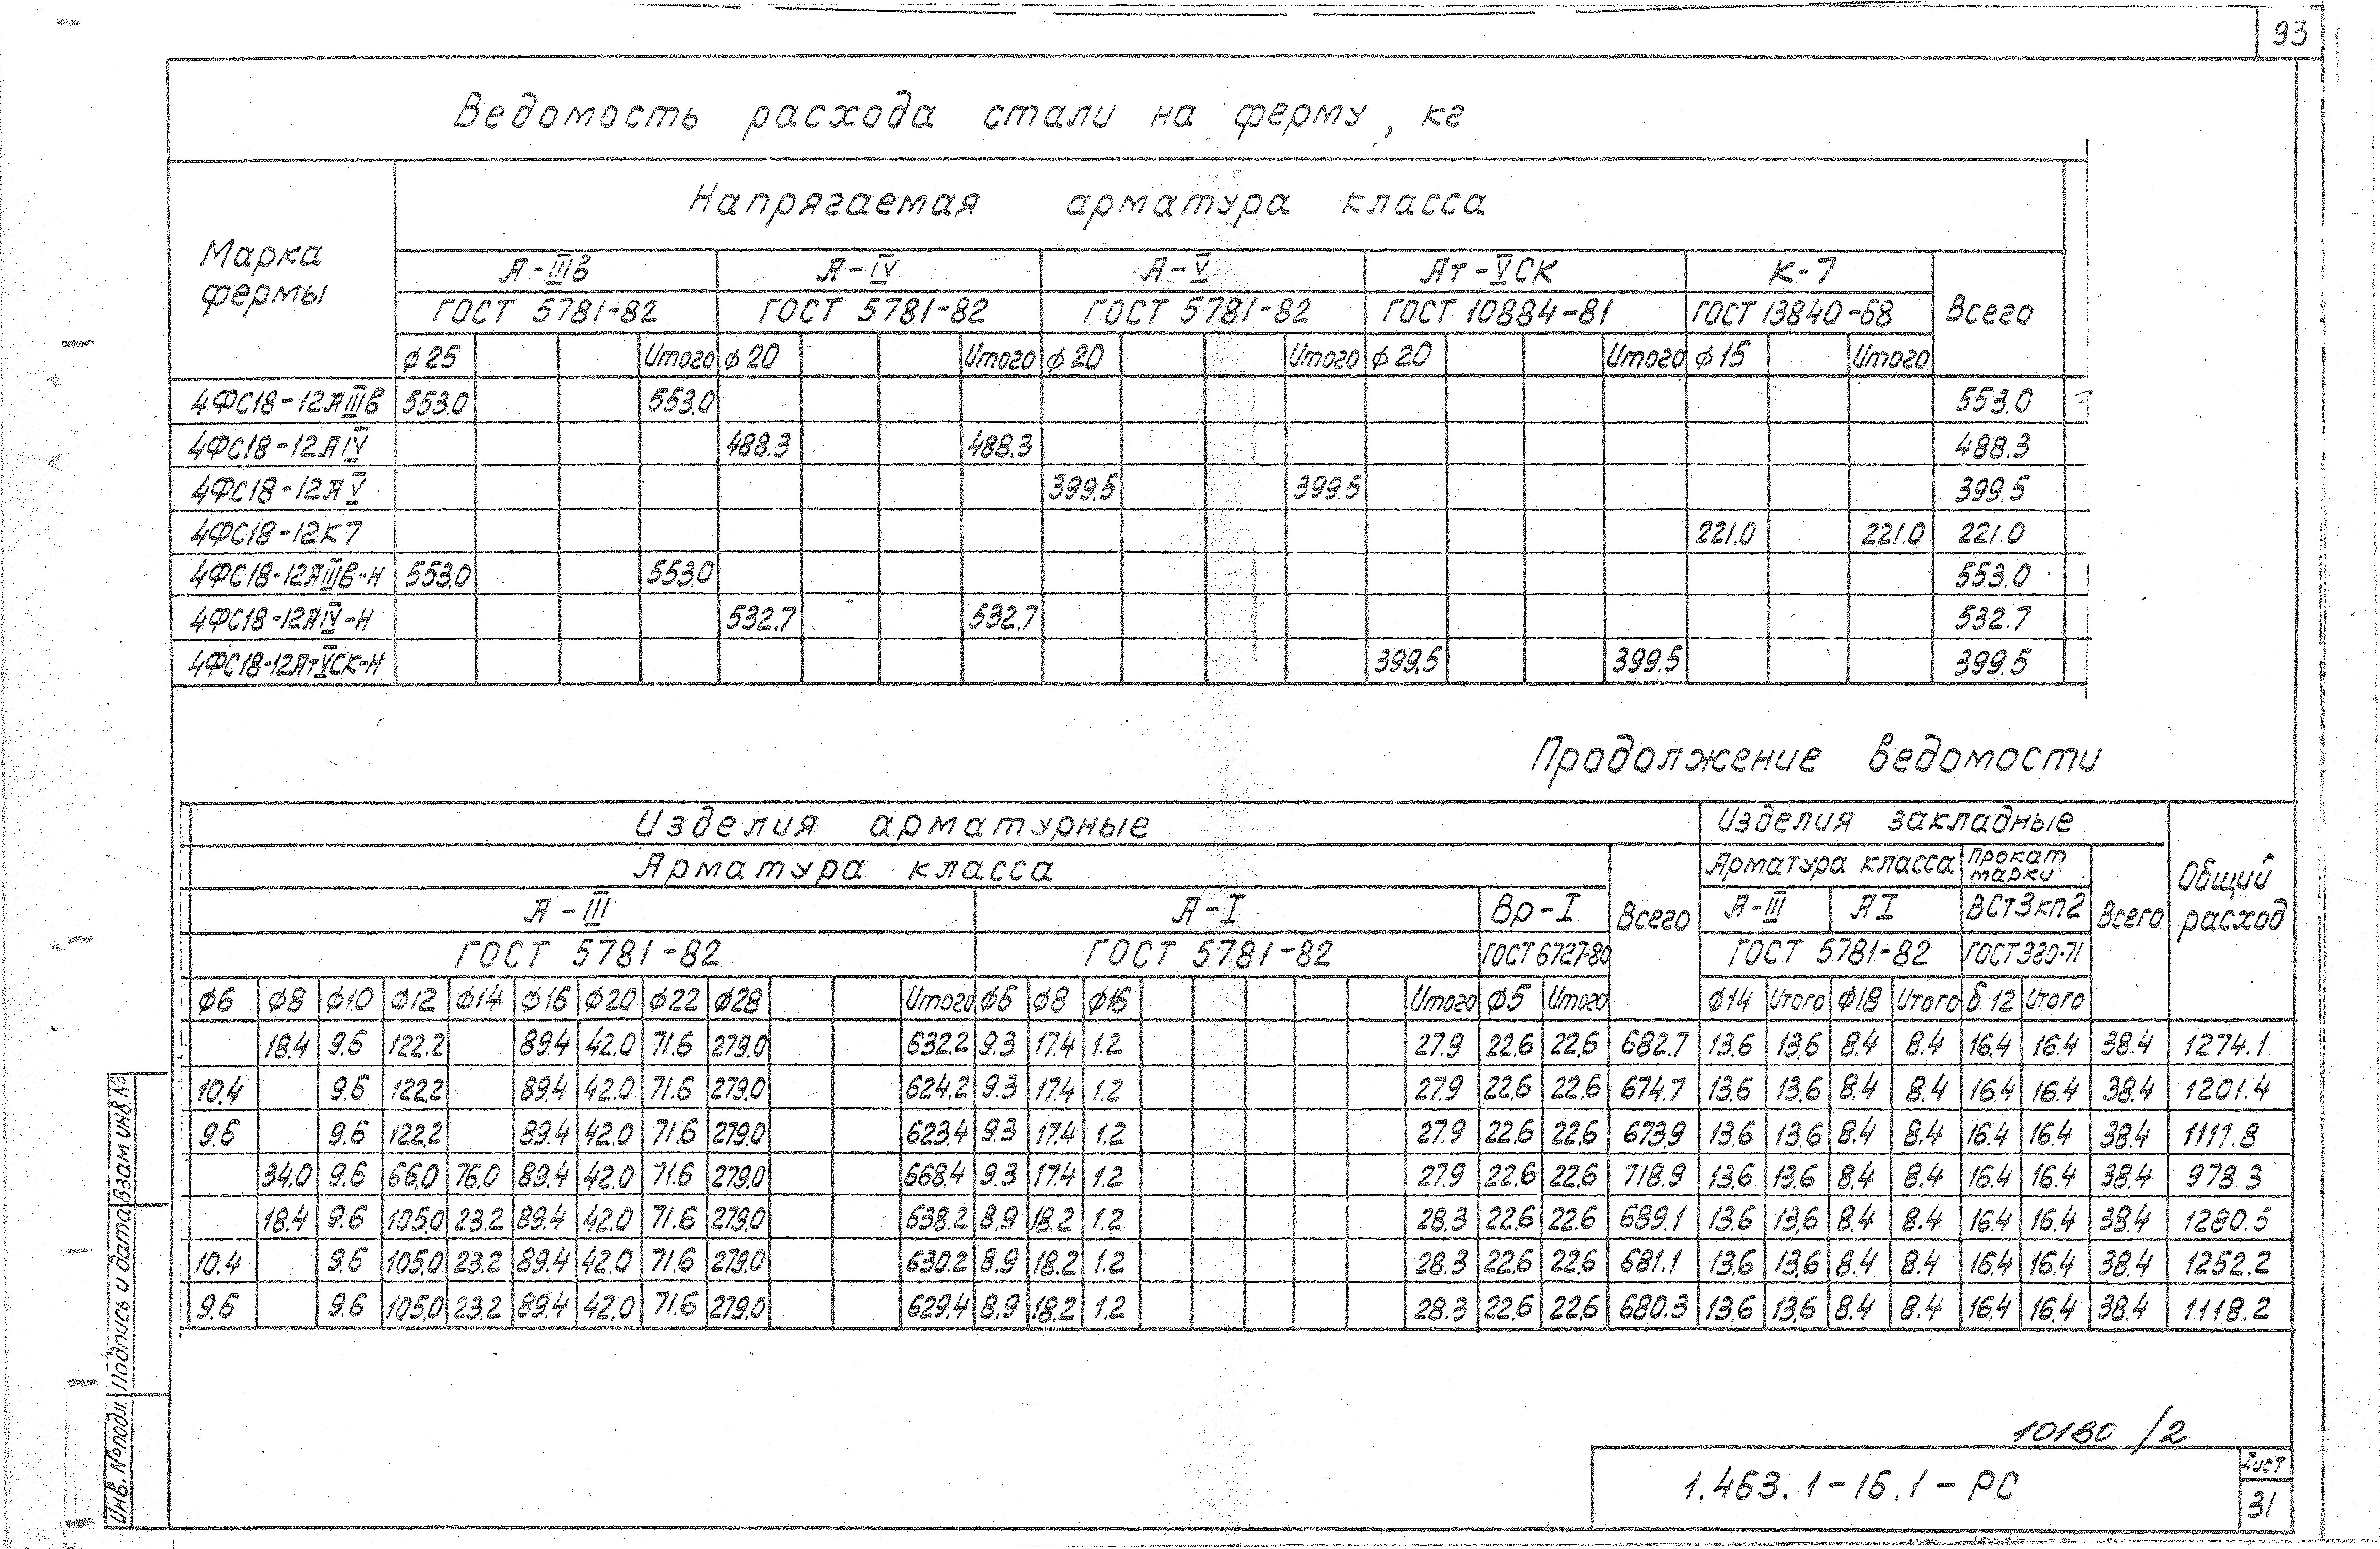 93
Ведомость расхода стали на ферму, кг
Марка фермы
Напрягаемая арматура класса
А-IIIв А-IV А-V Ат-VСК К-7 Всего
ГОСТ 5781-82 ГОСТ 5781-82 ГОСТ 5781-82 ГОСТ 10884-81 ГОСТ 13840-68
ф25 Итого ф20 Итого ф20 Итого ф20 Итого ф15 Итого
4ФС18-12АIIIв 553.0 553.0 553.0
4ФС18-12АIV 488.3 488.3 488.3
4ФС18-12АV 399.5 399.5 399.5
4ФС18-12К7 221.0 221.0 221.0
4ФС18-12АIIIв-Н 553.0 553.0 553.0
4ФС18-12АIV-Н 532.7 532.7 532.7
4ФС18-12АтVСК-Н 399.5 399.5 399.5
Продолжение ведомости
Изделия арматурные Изделия закладные Общий расход
Арматура класса Всего Арматура класса Прокат марки Всего
А-III А-I Вр-I А-III АI ВСт3кп2
ГОСТ 5781-82 ГОСТ 5781-82 ГОСТ 6727-80 ГОСТ 5781-82 ГОСТ 380-71
ф6 ф8 ф10 ф12 ф14 ф16 ф20 ф22 ф28 Итого ф6 ф8 ф16 Итого ф5 Итого ф14 Итого ф18 Итого δ12 Итого
18.4 9.6 122.2 89.4 42.0 71.6 279.0 632.2 9.3 17.4 1.2 27.9 22.6 22.6 682.7 13.6 13.6 8.4 8.4 16.4 16.4 38.4 1274.1
10.4 9.6 122.2 89.4 42.0 71.6 279.0 624.2 9.3 17.4 1.2 27.9 22.6 22.6 674.7 13.6 13.6 8.4 8.4 16.4 16.4 38.4 1201.4
9.6 9.6 122.2 89.4 42.0 71.6 279.0 623.4 9.3 17.4 1.2 27.9 22.6 22.6 673.9 13.6 13.6 8.4 8.4 16.4 16.4 38.4 1111.8
34.0 9.6 66.0 76.0 89.4 42.0 71.6 279.0 668.4 9.3 17.4 1.2 27.9 22.6 22.6 718.9 13.6 13.6 8.4 8.4 16.4 16.4 38.4 978.3
18.4 9.6 105.0 23.2 89.4 42.0 71.6 279.0 638.2 8.9 18.2 1.2 28.3 22.6 22.6 689.1 13.6 13.6 8.4 8.4 16.4 16.4 38.4 1280.5
10.4 9.6 105.0 23.2 89.4 42.0 71.6 279.0 630.2 8.9 18.2 1.2 28.3 22.6 22.6 681.1 13.6 13.6 8.4 8.4 16.4 16.4 38.4 1252.2
9.6 9.6 105.0 23.2 89.4 42.0 71.6 279.0 629.4 8.9 18.2 1.2 28.3 22.6 22.6 680.3 13.6 13.6 8.4 8.4 16.4 16.4 38.4 1118.2
Инв.№подл. Подпись и дата Взам.инв.№
10180/2
1.463.1-16.1-РС
Лист
31